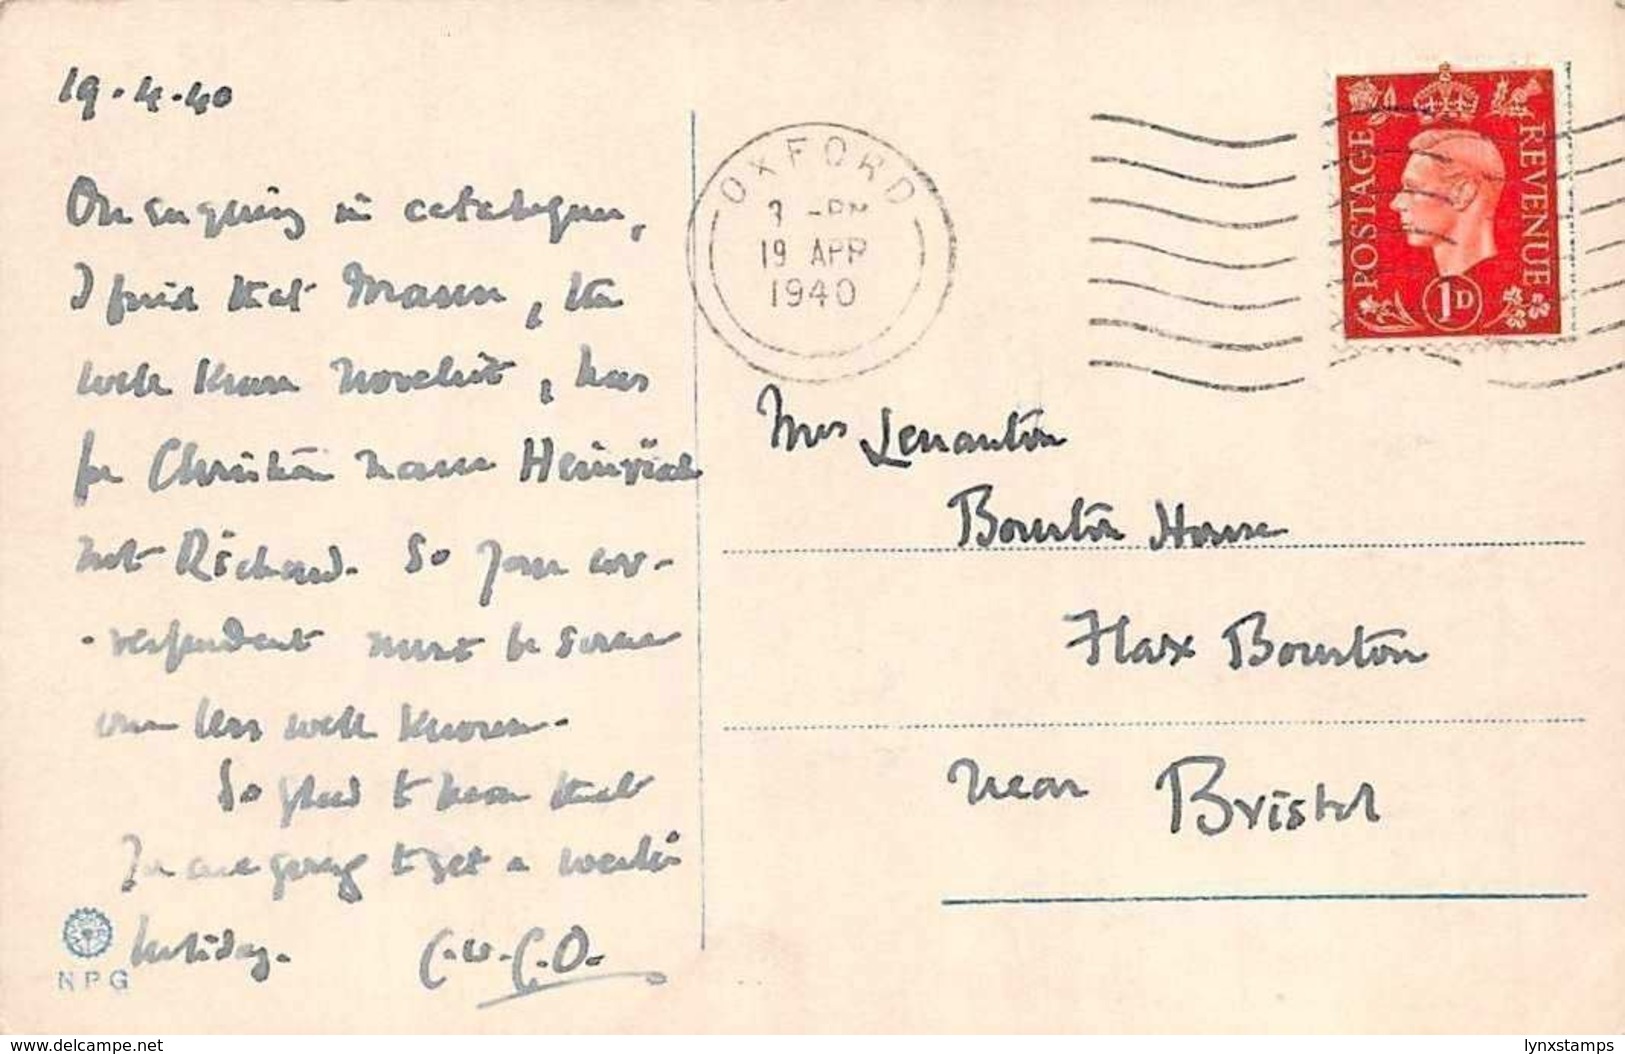 19.4.40
On enquiring in catalogues,
I find that Mann, the
well known novelist, has
for Christian name Heinrich
not Richard. So your cor-
-respondent must be some
one less well known.
So glad to know that
you are going to get a week's
holiday. C.W.C.O.
NPG
OXFORD
3 -PM
19 APR
1940
POSTAGE
REVENUE
1D
Mrs Lenanton
Bourton House
Flax Bourton
near Bristol
www.delcampe.net
lynxstamps